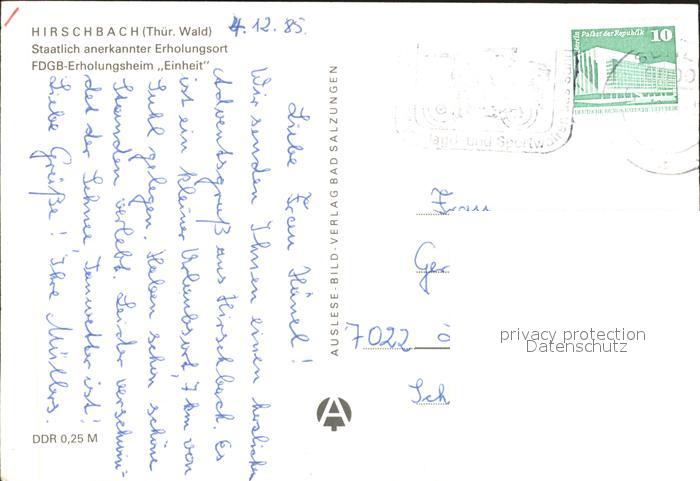 HIRSCHBACH (Thür. Wald)
Staatlich anerkannter Erholungsort
FDGB-Erholungsheim „Einheit“
4.12.85.
Liebe Frau Hänel!
Wir senden Ihnen einen herzlichen
Adventsgruß aus Hirschbach. Es
ist ein kleiner Urlaubsort, 7 km von
Suhl gelegen. Haben schon schöne
Stunden verlebt. Leider verschwin-
det der Schnee, Tauwetter ist!
Liebe Grüße! Ihre Müllers.
DDR 0,25 M
AUSLESE-BILD-VERLAG BAD SALZUNGEN
A
Berlin Palast der Republik
10
DEUTSCHE DEMOKRATISCHE REPUBLIK
Jagd- und Sportwaffen aus Suhl
Frau
Ge
7022
Sch
privacy protection
Datenschutz